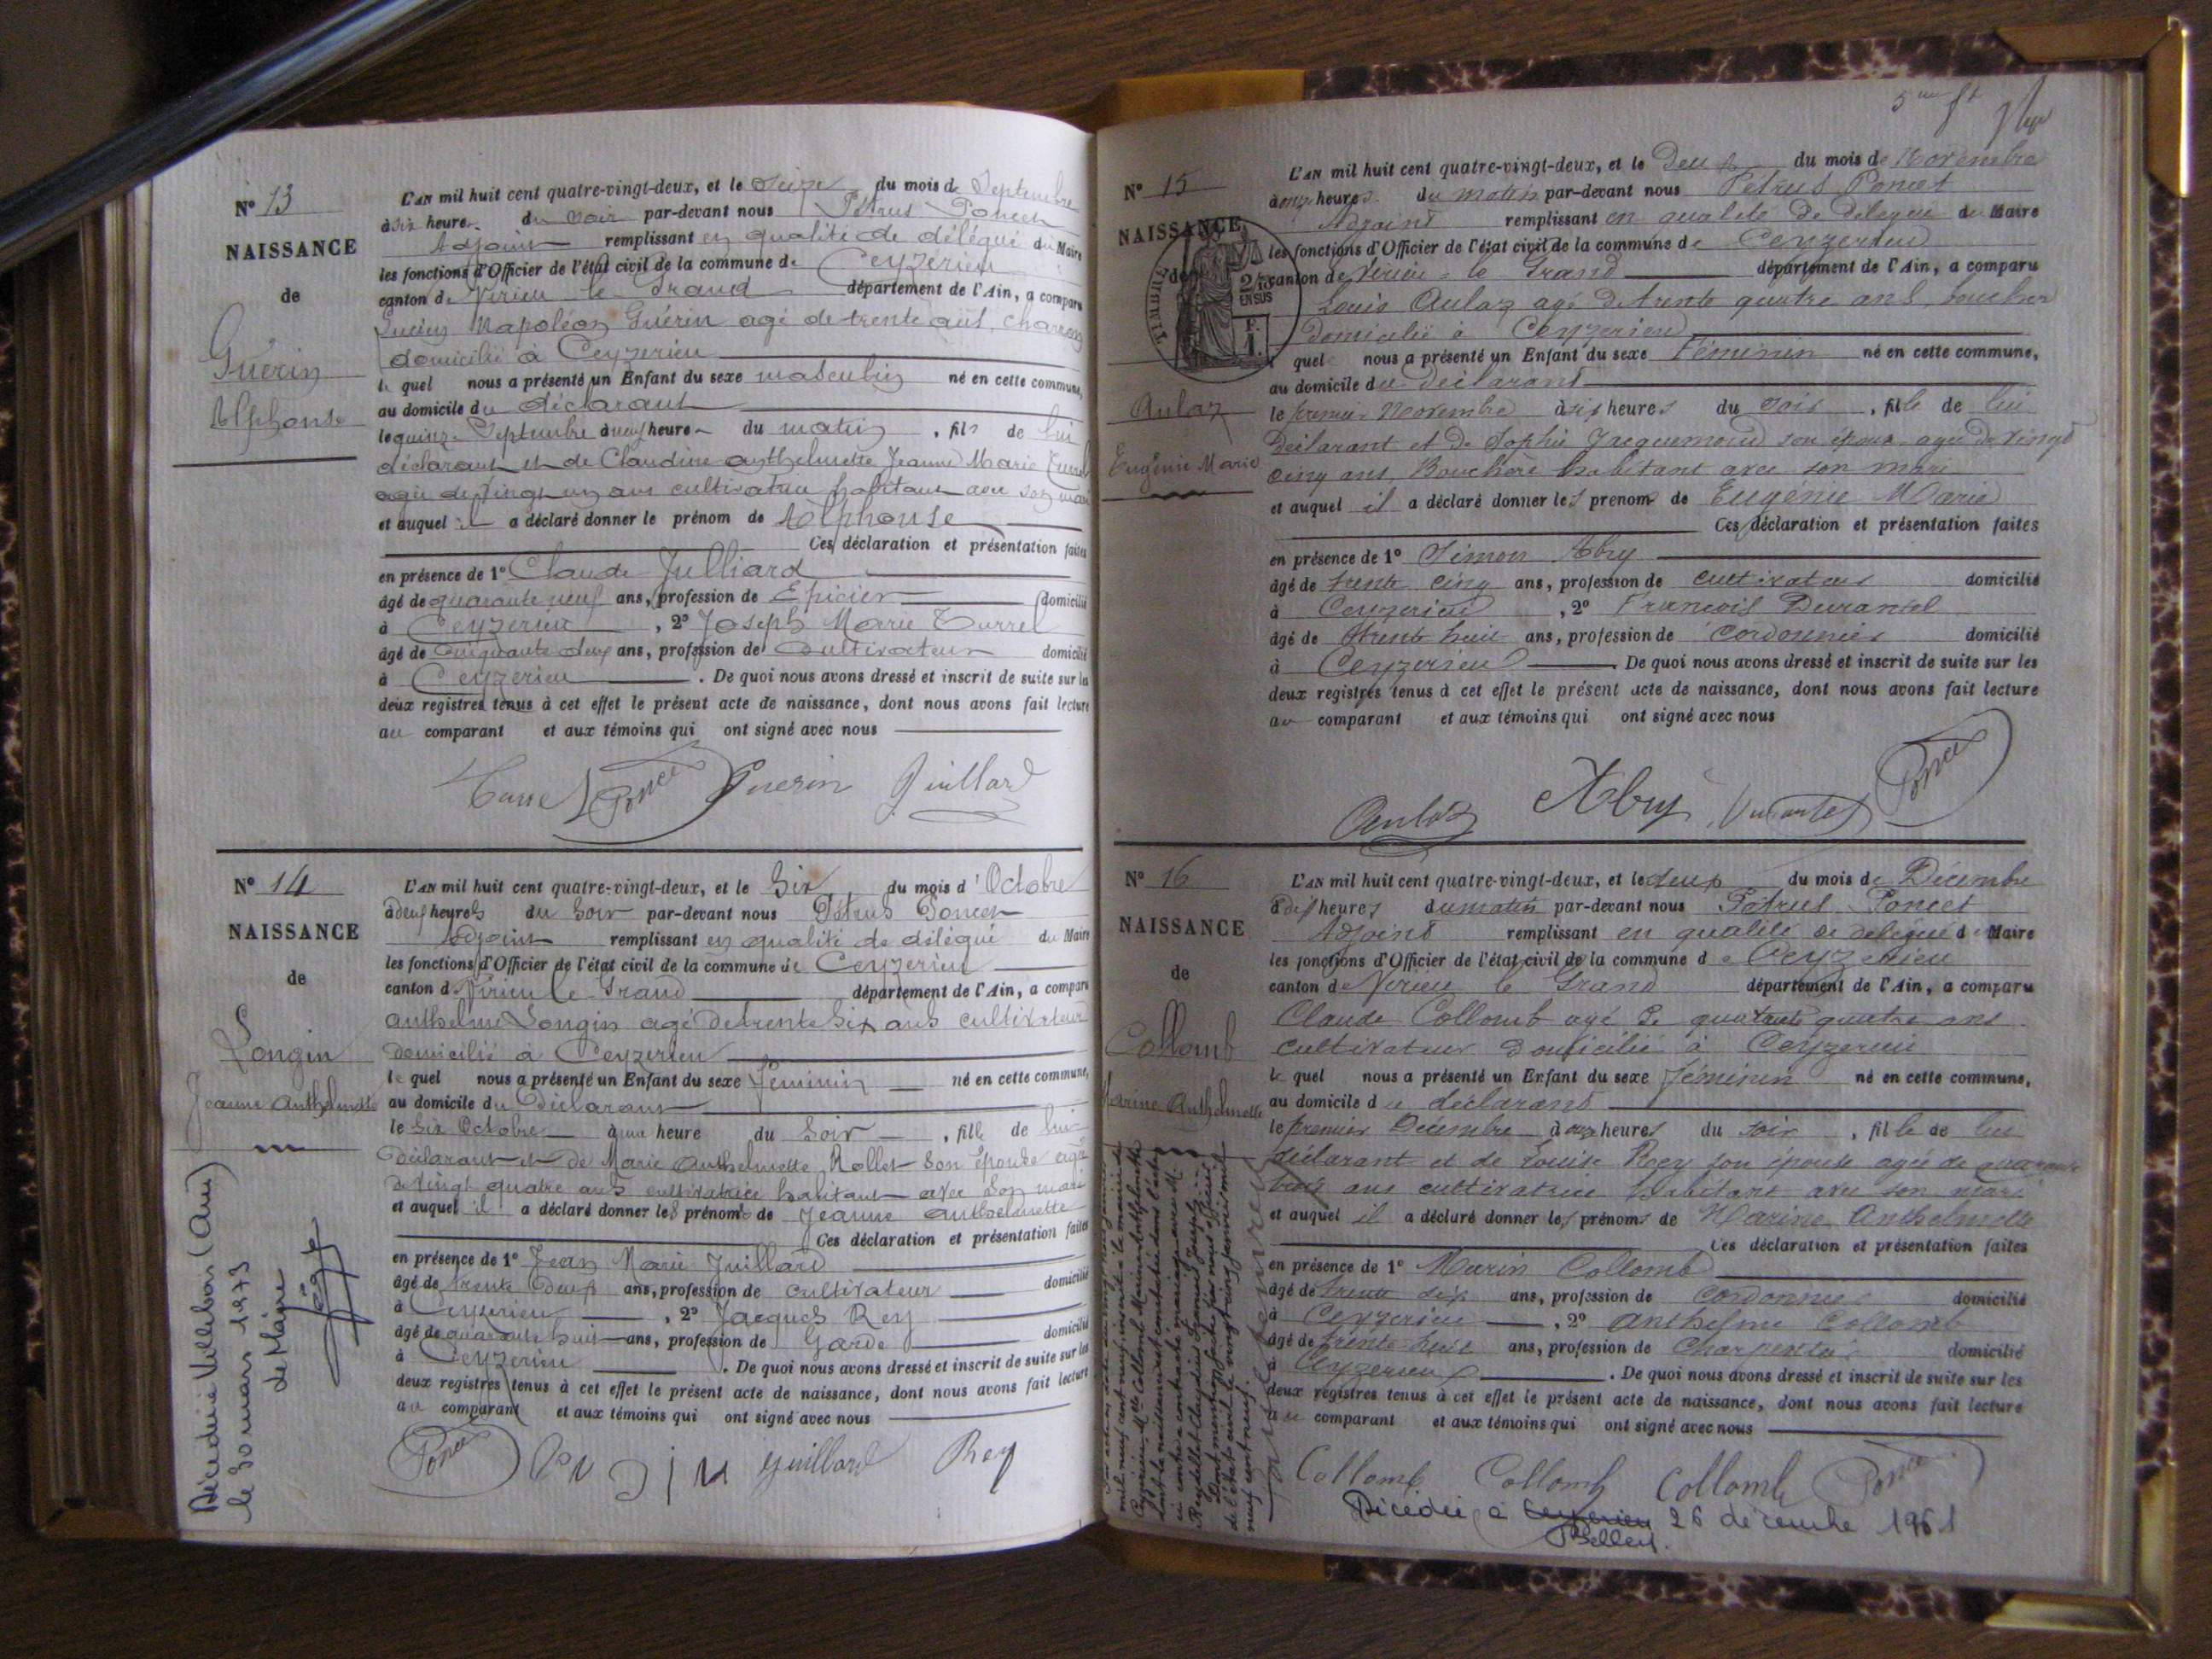 N° 13
NAISSANCE
de
Guérin
Alphonse
L'AN mil huit cent quatre-vingt-deux, et le seize du mois de Septembre
à six heures du soir par-devant nous Pétrus Poncet
Adjoint remplissant en qualité de délégué du Maire
les fonctions d'Officier de l'état civil de la commune de Ceyzerieu
canton de Virieu le Grand département de l'Ain, a comparu
Lucien Napoléon Guérin agé de trente ans, charron
domicilié à Ceyzerieu
le quel nous a présenté un Enfant du sexe masculin né en cette commune,
au domicile du déclarant
le quinze Septembre à neuf heures du matin, fils de lui
déclarant et de Claudine Anthelmette Jeanne Marie
agée de vingt un ans cultivatrice habitant avec son mari
et auquel il a déclaré donner le prénom de Alphonse
Ces déclaration et présentation faites
en présence de 1° Claude Julliard
âgé de quarante neuf ans, profession de Epicier domicilié
à Ceyzerieu, 2° Joseph Marie Turrel
âgé de cinquante deux ans, profession de Cultivateur domicilié
à Ceyzerieu. De quoi nous avons dressé et inscrit de suite sur les
deux registres tenus à cet effet le présent acte de naissance, dont nous avons fait lecture
au comparant et aux témoins qui ont signé avec nous
Poncet Guerin Juillard
N° 14
NAISSANCE
de
Longin
Jeanne Anthelmette
Décédée à Villebois (Ain)
le 30 mars 1973
le Maire
L'AN mil huit cent quatre-vingt-deux, et le Six du mois d'Octobre
à deux heures du Soir par-devant nous Pétrus Poncet
Adjoint remplissant en qualité de délégué du Maire
les fonctions d'Officier de l'état civil de la commune de Ceyzerieu
canton de Virieu le Grand département de l'Ain, a comparu
Anthelme Longin agé de trente Six ans cultivateur
domicilié à Ceyzerieu
le quel nous a présenté un Enfant du sexe féminin né en cette commune,
au domicile du Déclarant
le Six Octobre à une heure du Soir, fille de lui
Déclarant et de Marie Anthelmette Rollet Son épouse agée
de vingt quatre ans cultivatrice habitant avec Son mari
et auquel il a déclaré donner les prénoms de Jeanne Anthelmette
Ces déclaration et présentation faites
en présence de 1° Jean Marie Juillard
âgé de trente Deux ans, profession de cultivateur domicilié
à Ceyzerieu, 2° Jacques Rey
âgé de quarante huit ans, profession de Garde domicilié
à Ceyzerieu. De quoi nous avons dressé et inscrit de suite sur les
deux registres tenus à cet effet le présent acte de naissance, dont nous avons fait lecture
au comparant et aux témoins qui ont signé avec nous
Poncet Juillard Rey
N° 15
NAISSANCE
de
Aulaz
Eugénie Marie
L'AN mil huit cent quatre-vingt-deux, et le Deux du mois de Novembre
à onze heures du matin par-devant nous Pétrus Poncet
Adjoint remplissant en qualité de délégué du Maire
les fonctions d'Officier de l'état civil de la commune de Ceyzerieu
canton de Virieu-le Grand département de l'Ain, a comparu
Louis Aulaz agé de trente quatre ans boucher
Domicilié à Ceyzerieu
quel nous a présenté un Enfant du sexe Féminin né en cette commune,
au domicile du déclarant
le premier Novembre à six heures du soir, fille de lui
déclarant et de Sophie Jacquemond son épouse agée de vingt
cinq ans, Bouchère habitant avec son mari
et auquel il a déclaré donner les prenoms de Eugénie Marie
Ces déclaration et présentation faites
en présence de 1° Simon Abry
âgé de trente cinq ans, profession de cultivateur domicilié
à Ceyzerieu, 2° François Durantel
âgé de trente huit ans, profession de Cordonnier domicilié
à Ceyzerieu. De quoi nous avons dressé et inscrit de suite sur les
deux registres tenus à cet effet le présent acte de naissance, dont nous avons fait lecture
au comparant et aux témoins qui ont signé avec nous
Aulaz Abry Durantel Poncet
N° 16
NAISSANCE
de
Collomb
Marine Anthelmette
L'AN mil huit cent quatre-vingt-deux, et le deux du mois de Décembre
à dix heures du matin par-devant nous Pétrus Poncet
Adjoint remplissant en qualité de délégué de Maire
les fonctions d'Officier de l'état civil de la commune de Ceyzerieu
canton de Virieu le Grand département de l'Ain, a comparu
Claude Collomb agé de quarante quatre ans
cultivateur domicilié à Ceyzerieu
le quel nous a présenté un Enfant du sexe féminin né en cette commune,
au domicile du déclarant
le premier Décembre à onze heures du soir, fille de lui
déclarant et de Louise Rey son épouse agée de quarante
trois ans cultivatrice habitant avec son mari
et auquel il a déclaré donner les prénoms de Marine Anthelmette
Ces déclaration et présentation faites
en présence de 1° Marin Collomb
âgé de trente six ans, profession de Cordonnier domicilié
à Ceyzerieu, 2° Anthelme Collomb
âgé de trente huit ans, profession de Charpentier domicilié
à Ceyzerieu. De quoi nous avons dressé et inscrit de suite sur les
deux registres tenus à cet effet le présent acte de naissance, dont nous avons fait lecture
au comparant et aux témoins qui ont signé avec nous
Collomb Collomb Collomb Poncet
Décédée à Ceyzerieu 26 décembre 1961
Belley.